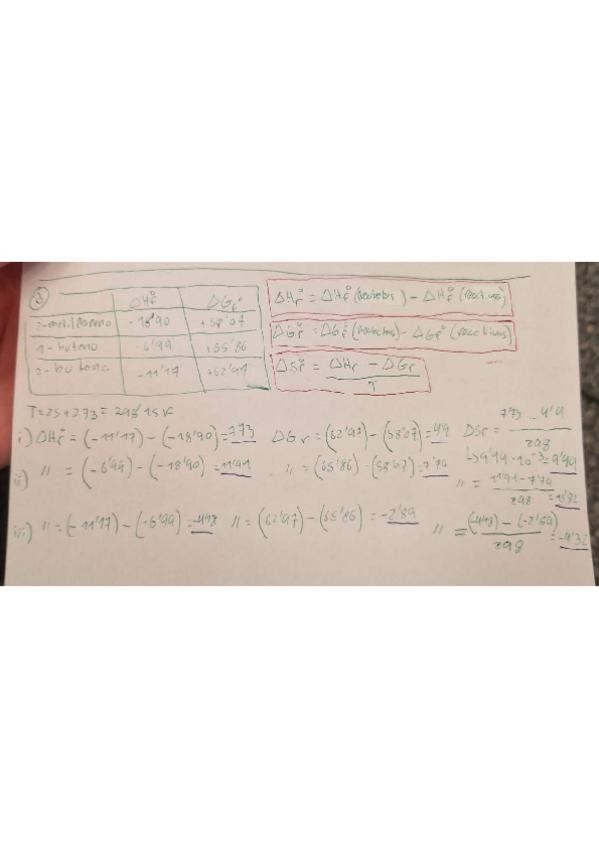 ③
ΔHf° ΔGf°
2-metilpropeno -18'90 +58'07
1-buteno -6'99 +65'86
2-buteno -11'17 +62'97
ΔHr° = ΔHf° (productos) - ΔHf° (reactivos)
ΔGr° = ΔGf° (productos) - ΔGf° (reactivos)
ΔSr° = ΔHr - ΔGr / T
T=25+273= 298'15 K
i) ΔHr° = (-11'17) - (-18'90) = 7'73 ΔGr = (62'97) - (58'07) = 4'9 ΔSr = 7'73 - 4'9 / 298
↳ 9'49 · 10⁻³ = 9'49
ii) " = (-6'99) - (-18'90) = 11'91 " = (65'86) - (58'07) = 7'79 " = 11'91 - 7'79 / 298 = 13'82
iii) " = (-11'17) - (-6'99) = -4'18 " = (62'97) - (65'86) = -2'89 " = (-4'18) - (-2'89) / 298 = -4'32